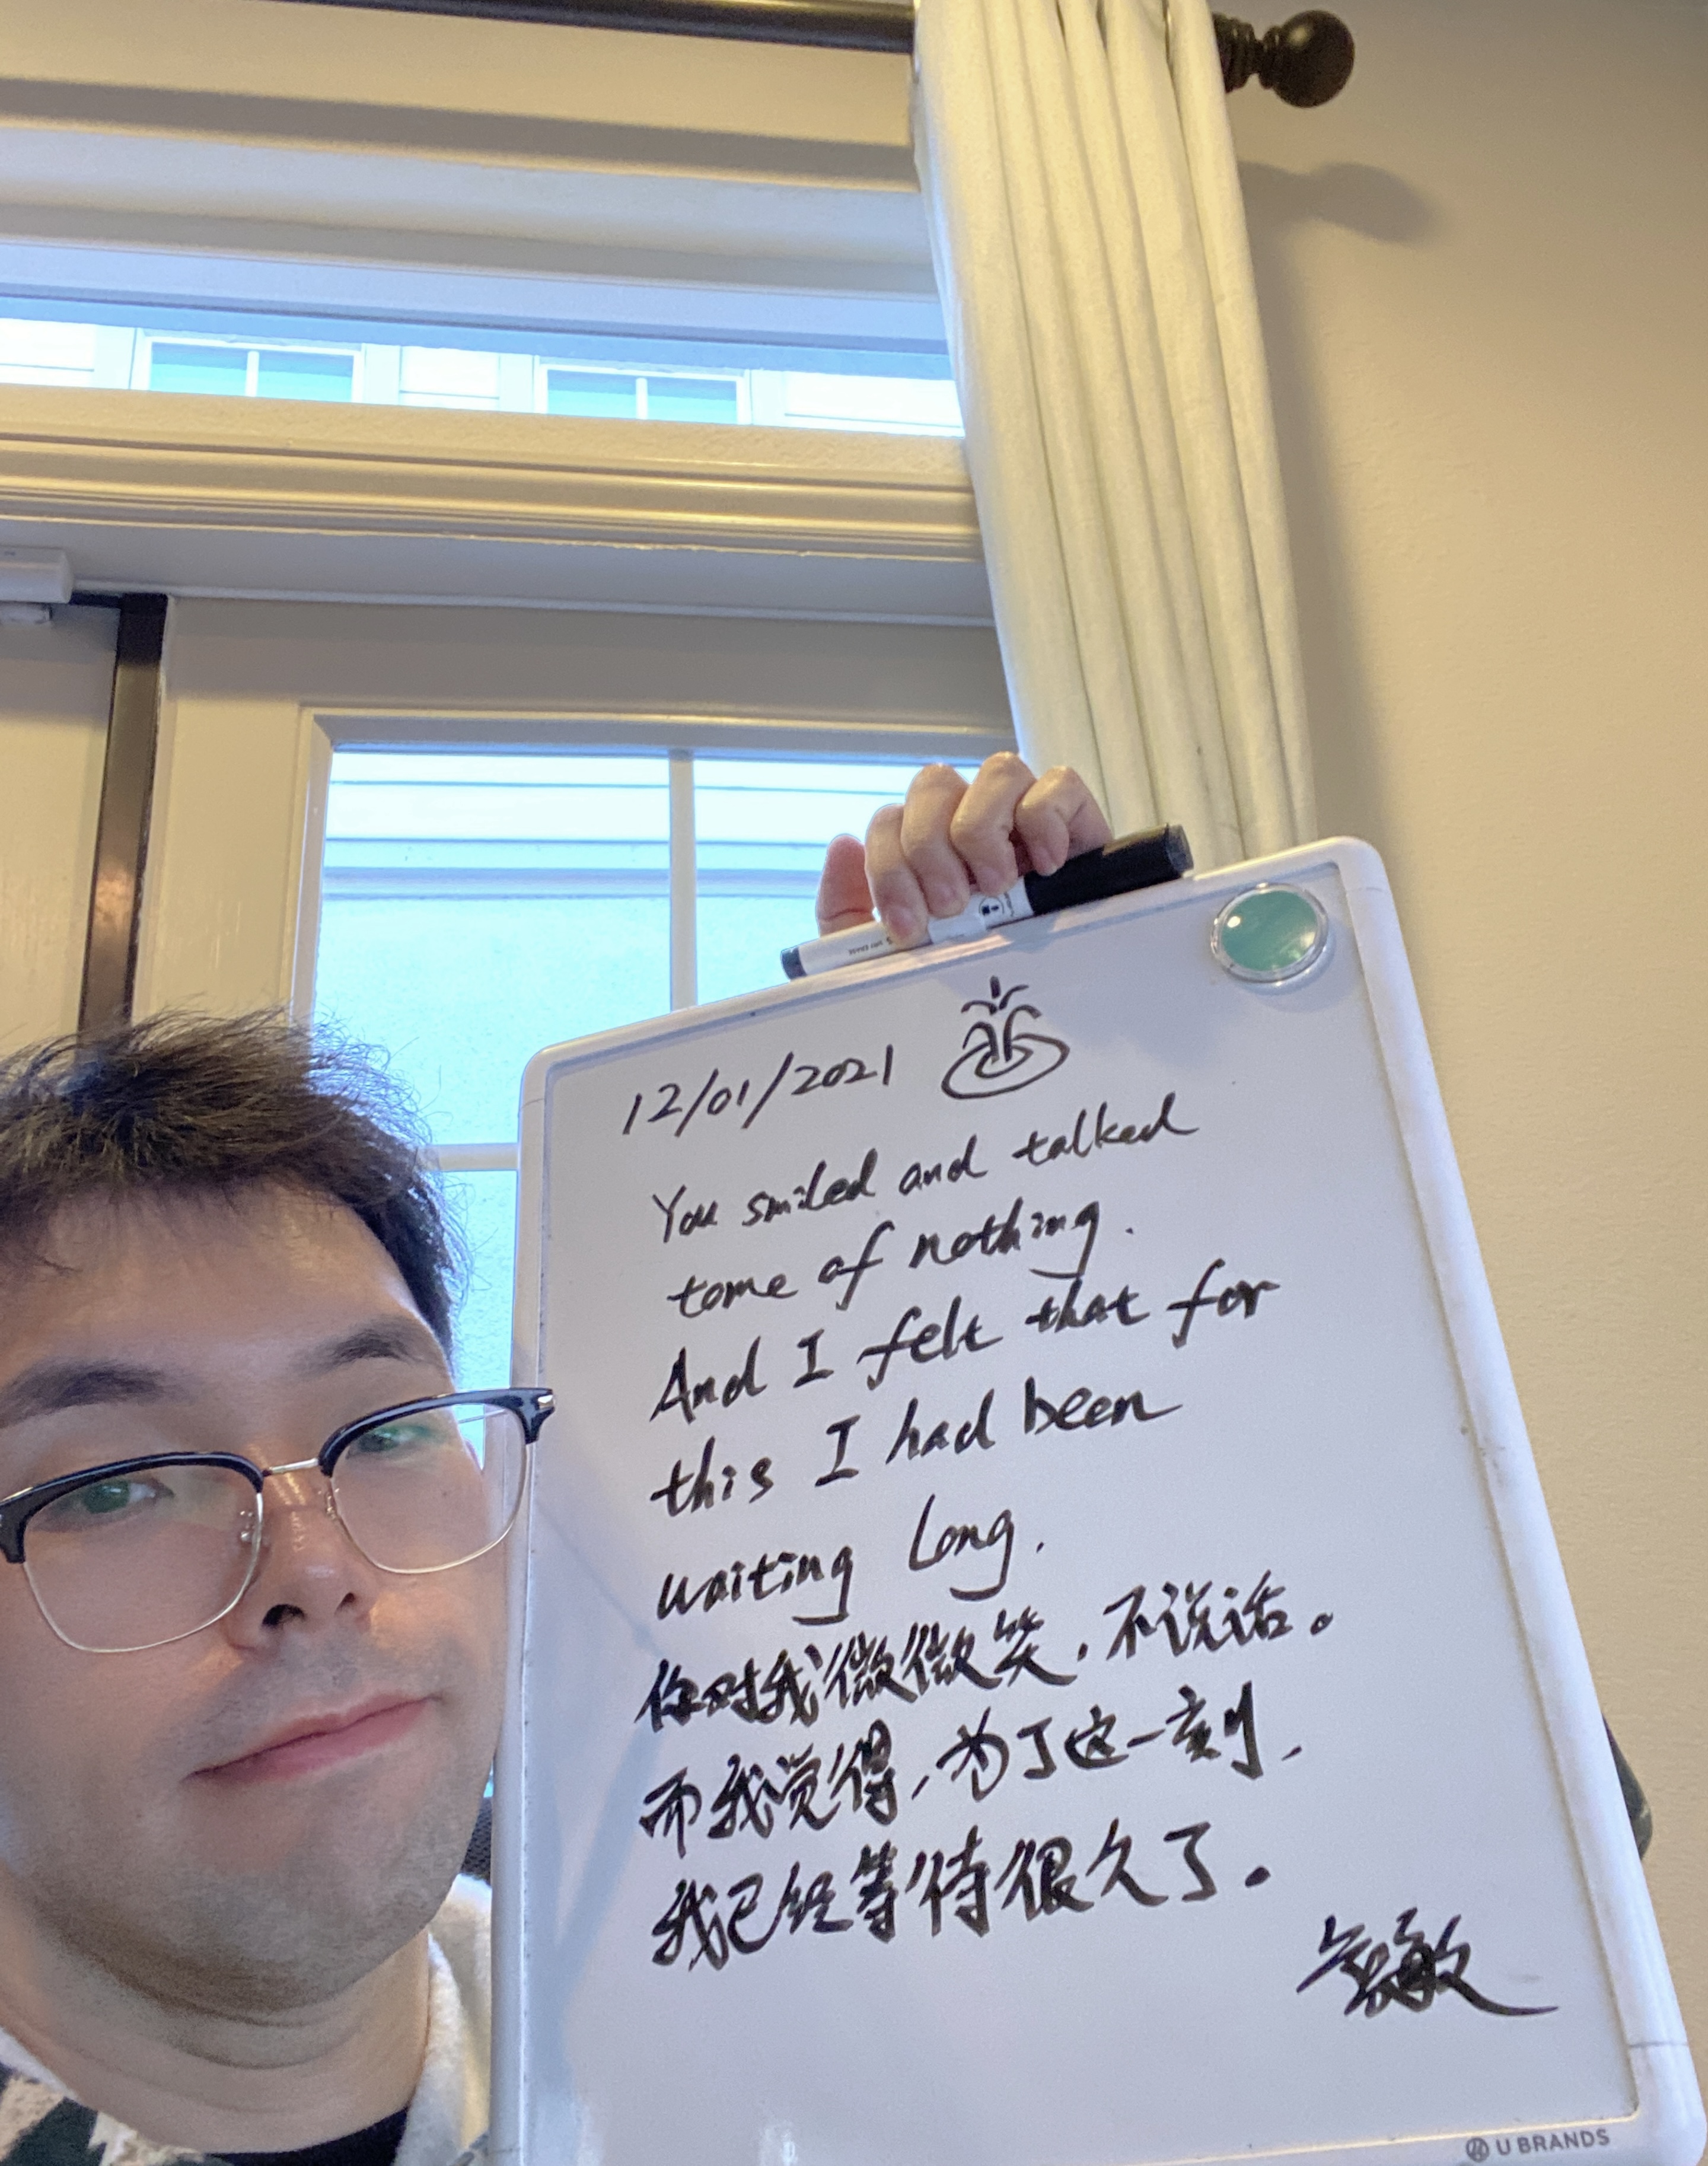 12/01/2021
You smiled and talked
tome of nothing.
And I felt that for
this I had been
waiting Long.
你对我微微笑，不说话。
而我觉得，为了这一刻，
我已经等待很久了。
敏
U BRANDS